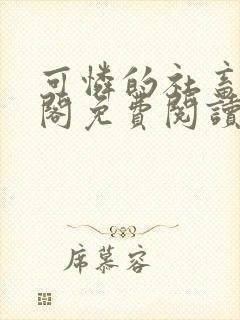 可憐的社畜
閣免費閱讀
席慕容